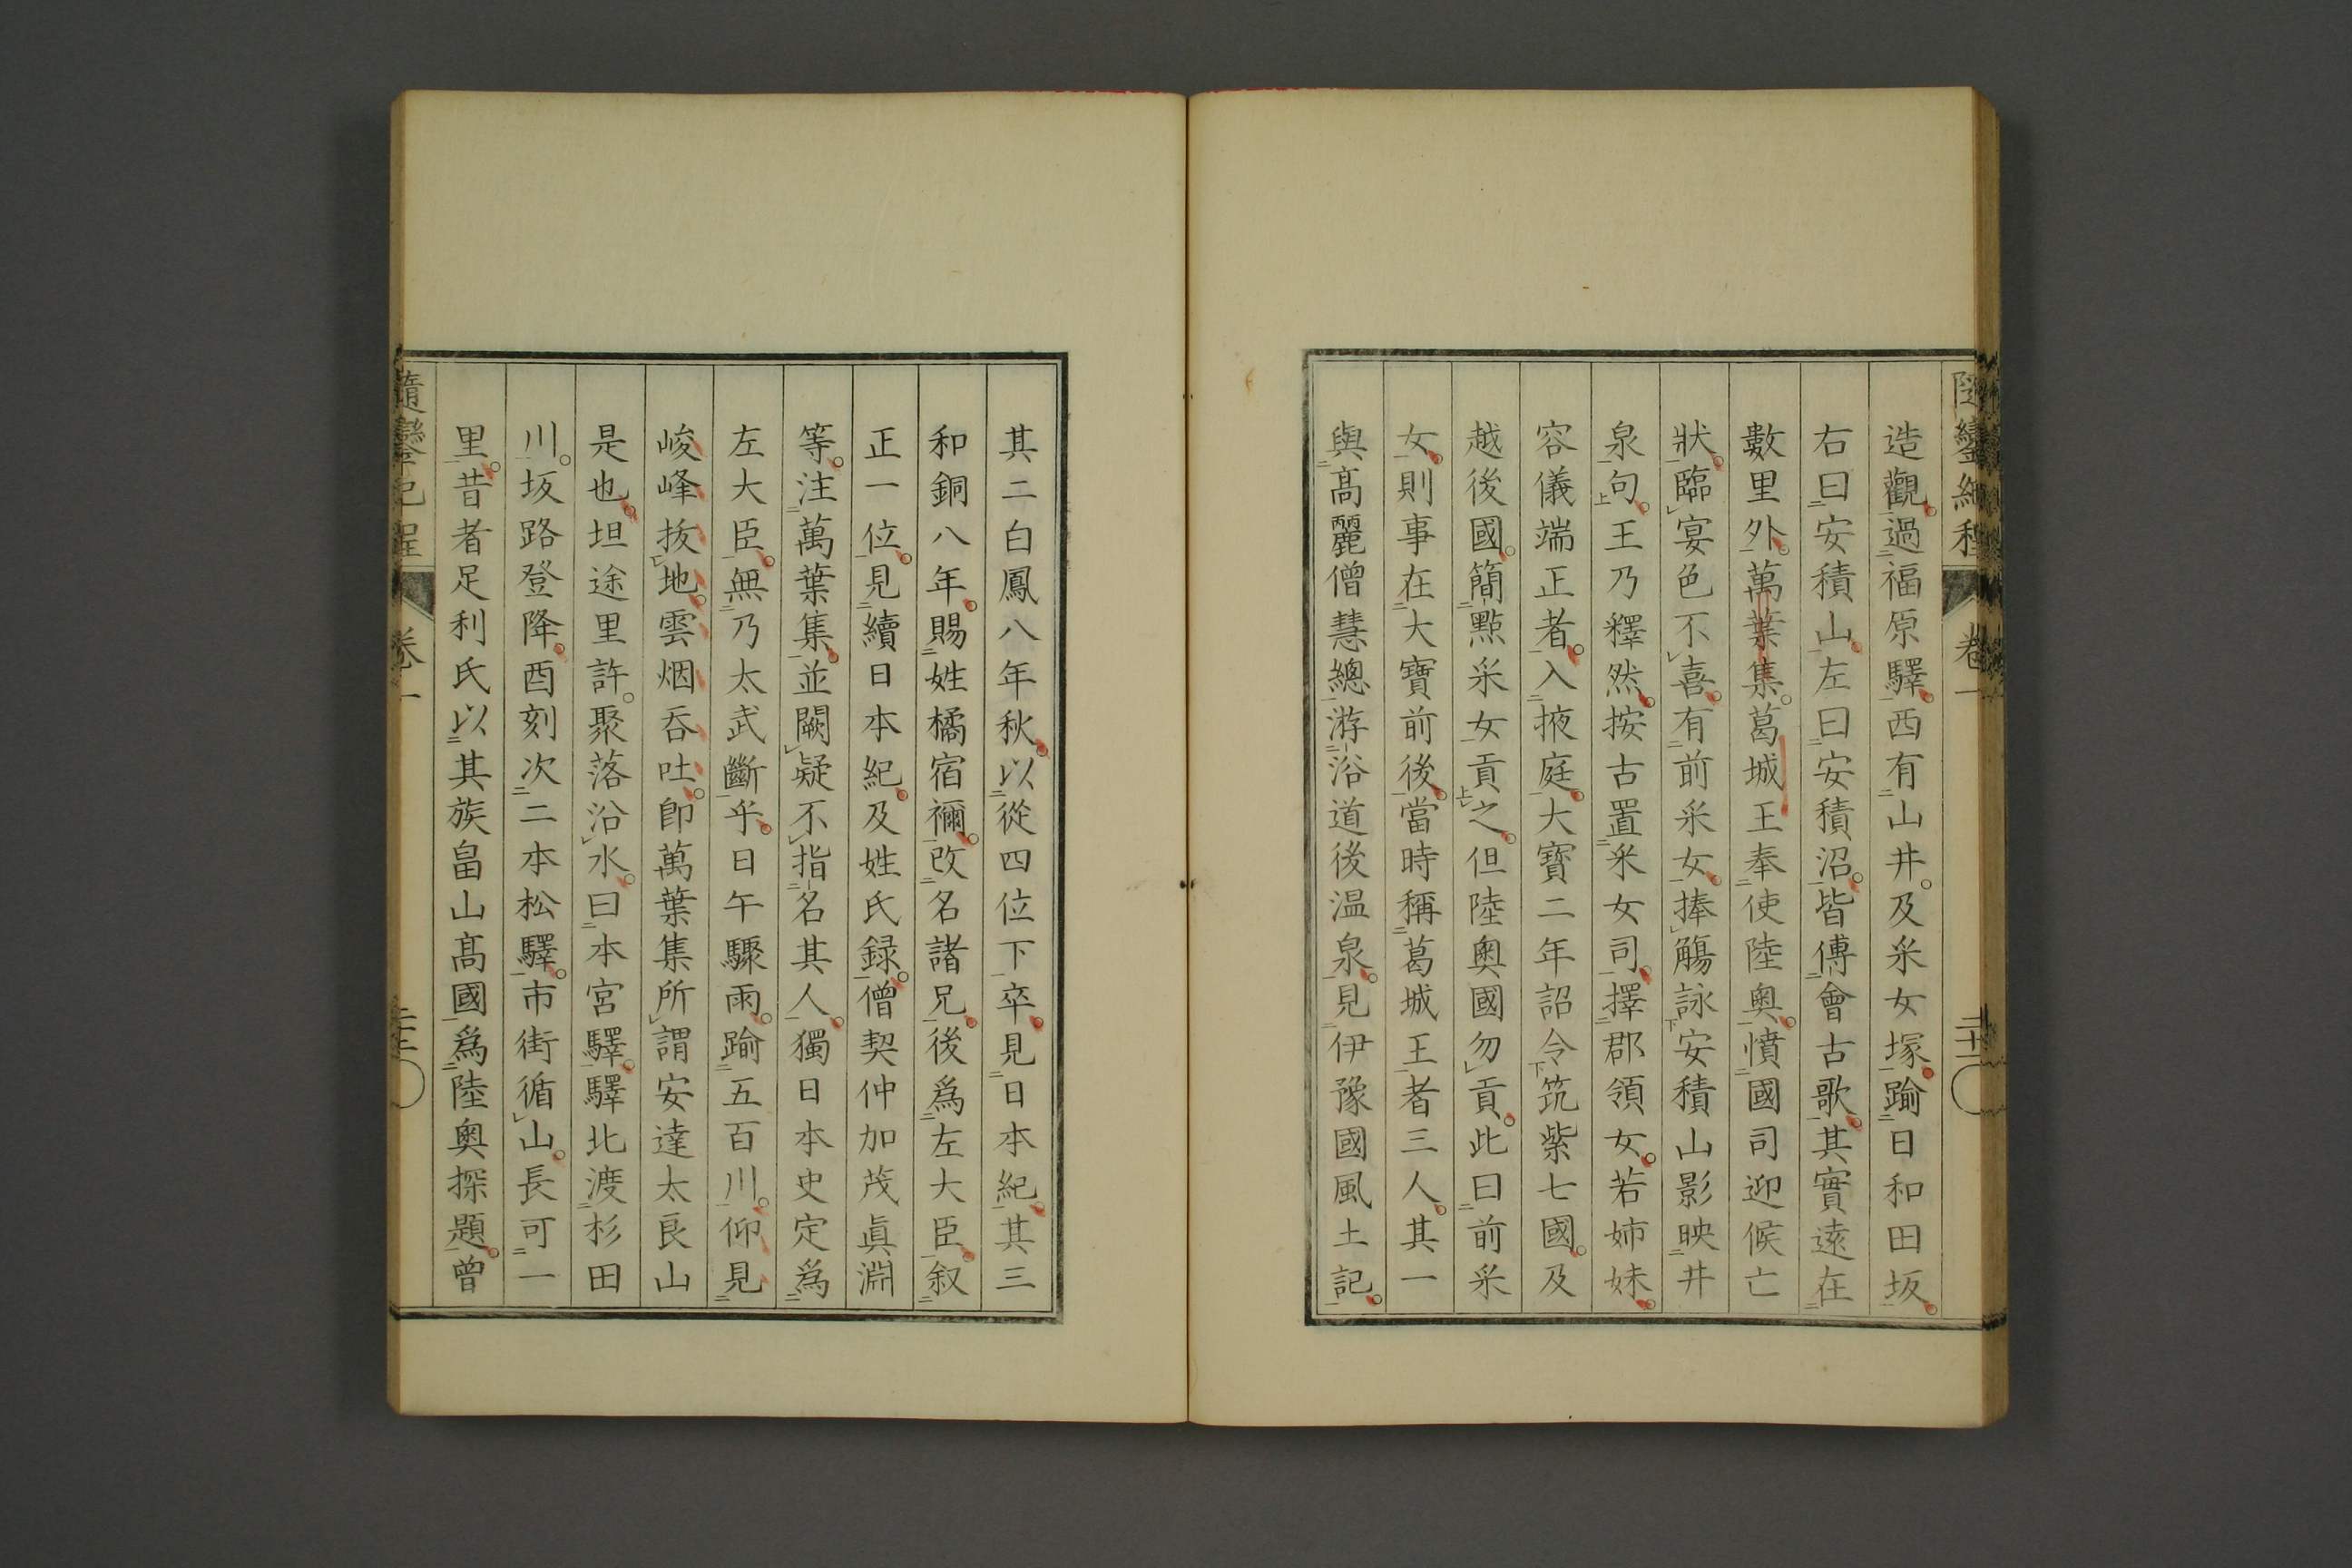 造觀過福原驛西有山井及釆女塚踰日和田坂
右曰安積山左曰安積沼皆傅會古歌其實遠在
數里外萬葉集葛城王奉使陸奧憤國司迎候亡
狀臨宴色不喜有前釆女捧觴詠安積山影映井
泉句王乃釋然按古置釆女司擇郡領女若姉妹
容儀端正者入掖庭大寶二年詔令筑紫七國及
越後國簡點釆女貢之但陸奧國勿貢此曰前釆
女則事在大寶前後當時稱葛城王者三人其一
與髙麗僧慧總游浴道後温泉見伊豫國風土記
其二白鳳八年秋以從四位下卒見日本紀其三
和銅八年賜姓橘宿禰改名諸兄後爲左大臣叙
正一位見續日本紀及姓氏録僧契仲加茂眞淵
等注萬葉集並闕疑不指名其人獨日本史定爲
左大臣無乃太武斷乎日午驟雨踰五百川仰見
峻峰拔地雲烟呑吐卽萬葉集所謂安達太良山
是也坦途里許聚落沿水曰本宮驛驛北渡杉田
川坂路登降酉刻次二本松驛市街循山長可一
里昔者足利氏以其族畠山髙國爲陸奧探題曾
隨鑾紀程
卷一